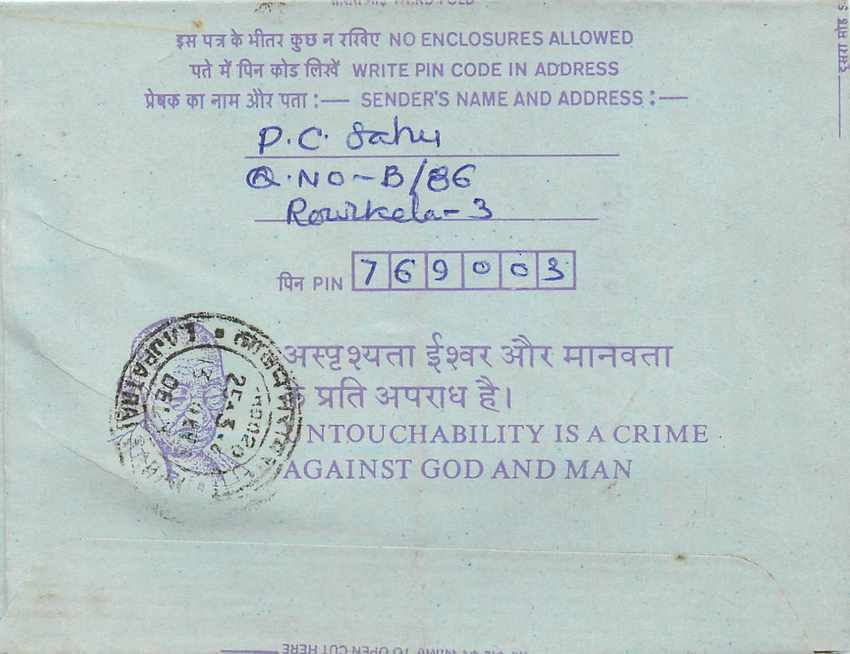 इस पत्र के भीतर कुछ न रखिए NO ENCLOSURES ALLOWED
पते में पिन कोड लिखें WRITE PIN CODE IN ADDRESS
प्रेषक का नाम और पता :— SENDER'S NAME AND ADDRESS :—
P. C. Sahu
Q. NO - B/86
Rourkela - 3
पिन PIN 769003
अस्पृश्यता ईश्वर और मानवता
के प्रति अपराध है।
NTOUCHABILITY IS A CRIME
AGAINST GOD AND MAN
LAJPATRAI
TO OPEN CUT HERE